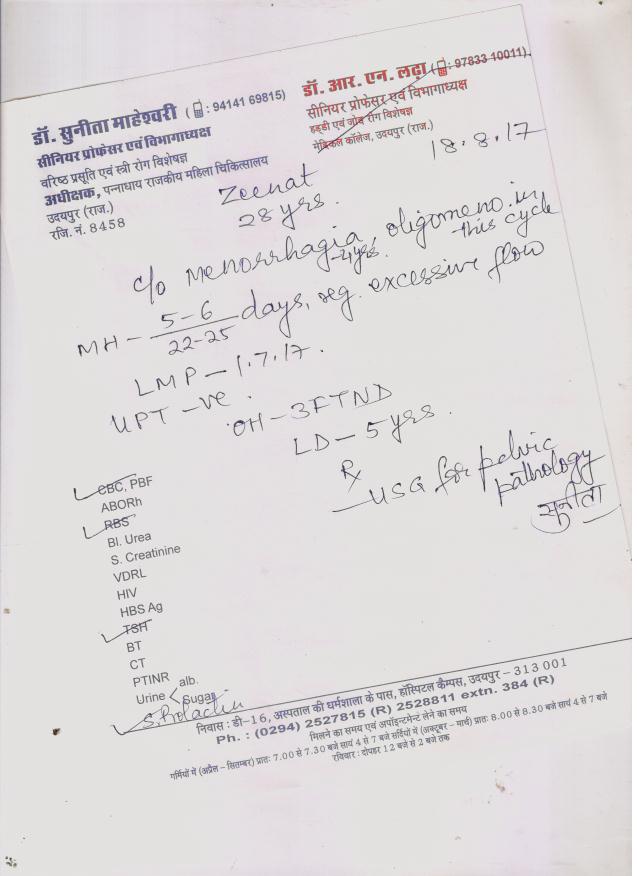 डॉ. सुनीता माहेश्वरी (📱: 94141 69815)
सीनियर प्रोफेसर एवं विभागाध्यक्ष
वरिष्ठ प्रसूति एवं स्त्री रोग विशेषज्ञ
अधीक्षक, पन्नाधाय राजकीय महिला चिकित्सालय
उदयपुर (राज.)
रजि. नं. 8458
डॉ. आर. एन. लढ़ा (📱: 97833 10011)
सीनियर प्रोफेसर एवं विभागाध्यक्ष
हड्डी एवं जोड़ रोग विशेषज्ञ
मेडिकल कॉलेज, उदयपुर (राज.)
18.8.17
Zeenat
28 yrs.
c/o Menorrhagia, oligomeno. in
-4yrs. this cycle
MH - 5-6/22-25 days, reg. excessive flow
LMP - 1.7.17.
UPT -ve.
OH - 3FTND
LD - 5 yrs.
Rx
USG for pelvic
pathology
सुनीता
CBC, PBF
ABORh
RBS
Bl. Urea
S. Creatinine
VDRL
HIV
HBS Ag
TSH
BT
CT
PTINR
Urine < alb.
Sugar
S. Prolactin
निवास : डी-16, अस्पताल की धर्मशाला के पास, हॉस्पिटल कैम्पस, उदयपुर - 313 001
Ph. : (0294) 2527815 (R) 2528811 extn. 384 (R)
मिलने का समय एवं अपॉइन्टमेन्ट लेने का समय
गर्मियों में (अप्रैल - सितम्बर) प्रातः 7.00 से 7.30 बजे सायं 4 से 7 बजे सर्दियों में (अक्टूबर - मार्च) प्रातः 8.00 से 8.30 बजे सायं 4 से 7 बजे
रविवार : दोपहर 12 बजे से 2 बजे तक